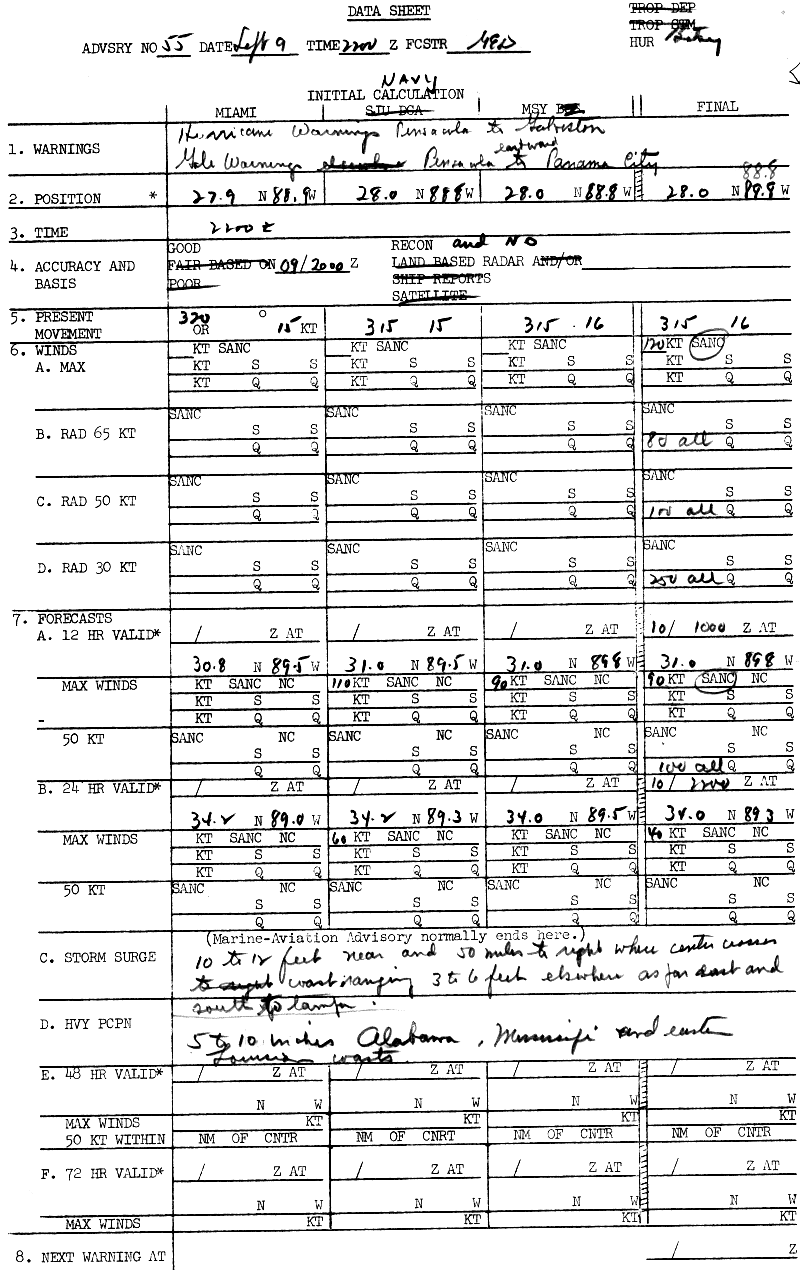 DATA SHEET
TROP DEP
TROP STM
ADVSRY NO 55 DATE Sept 9 TIME 2200 Z FCSTR HUR Betsy
NAVY
INITIAL CALCULATION
MIAMI SJU DCA MSY FINAL
1. WARNINGS Hurricane Warnings Pensacola to Galveston
eastward
Gale Warnings elsewhere Pensacola to Panama City
88.8
2. POSITION * 27.9 N 88.9 W 28.0 N 88.8 W 28.0 N 88.8 W 28.0 N W
3. TIME 2200 Z
4. ACCURACY AND BASIS GOOD RECON and NO
FAIR BASED ON 09/2000 Z LAND BASED RADAR AND/OR
POOR SHIP REPORTS
SATELLITE
5. PRESENT MOVEMENT 320 OR ° 15 KT 315 15 315 16 315 16
6. WINDS KT SANC KT SANC KT SANC 120 KT SANC
A. MAX KT S S KT S S KT S S KT S S
KT Q Q KT Q Q KT Q Q KT Q Q
SANC SANC SANC SANC
B. RAD 65 KT S S S S S S S S
Q Q Q Q Q Q 80 all Q Q
SANC SANC SANC SANC
C. RAD 50 KT S S S S S S S S
Q Q Q Q Q Q 100 all Q Q
SANC SANC SANC SANC
D. RAD 30 KT S S S S S S S S
Q Q Q Q Q Q 250 all Q Q
7. FORECASTS
A. 12 HR VALID* / Z AT / Z AT / Z AT 10/ 1000 Z AT
30.8 N 89.5 W 31.0 N 89.5 W 31.0 N 89.8 W 31.0 N 89.8 W
MAX WINDS KT SANC NC 110 KT SANC NC 90 KT SANC NC 90 KT SANC NC
KT S S KT S S KT S S KT S S
KT Q Q KT Q Q KT Q Q KT Q Q
50 KT SANC NC SANC NC SANC NC SANC NC
S S S S S S S S
Q Q Q Q Q Q 100 all Q Q
B. 24 HR VALID* / Z AT / Z AT / Z AT 10/ 2200 Z AT
34.2 N 89.0 W 34.2 N 89.3 W 34.0 N 89.5 W 34.0 N 89.3 W
MAX WINDS KT SANC NC 60 KT SANC NC KT SANC NC 40 KT SANC NC
KT S S KT S S KT S S KT S S
KT Q Q KT Q Q KT Q Q KT Q Q
50 KT SANC NC SANC NC SANC NC SANC NC
S S S S S S S S
Q Q Q Q Q Q Q Q
(Marine-Aviation Advisory normally ends here.)
C. STORM SURGE 10 to 12 feet near and 50 miles to right where center crosses
to right coast ranging 3 to 6 feet elsewhere as far east and
south to Tampa.
D. HVY PCPN 5 to 10 inches Alabama, Mississippi and eastern
Louisiana coasts.
E. 48 HR VALID* / Z AT / Z AT / Z AT / Z AT
N W N W N W N W
MAX WINDS KT KT KT KT
50 KT WITHIN NM OF CNTR NM OF CNRT NM OF CNTR NM OF CNTR
F. 72 HR VALID* / Z AT / Z AT / Z AT / Z AT
N W N W N W N W
MAX WINDS KT KT KT KT
8. NEXT WARNING AT / Z